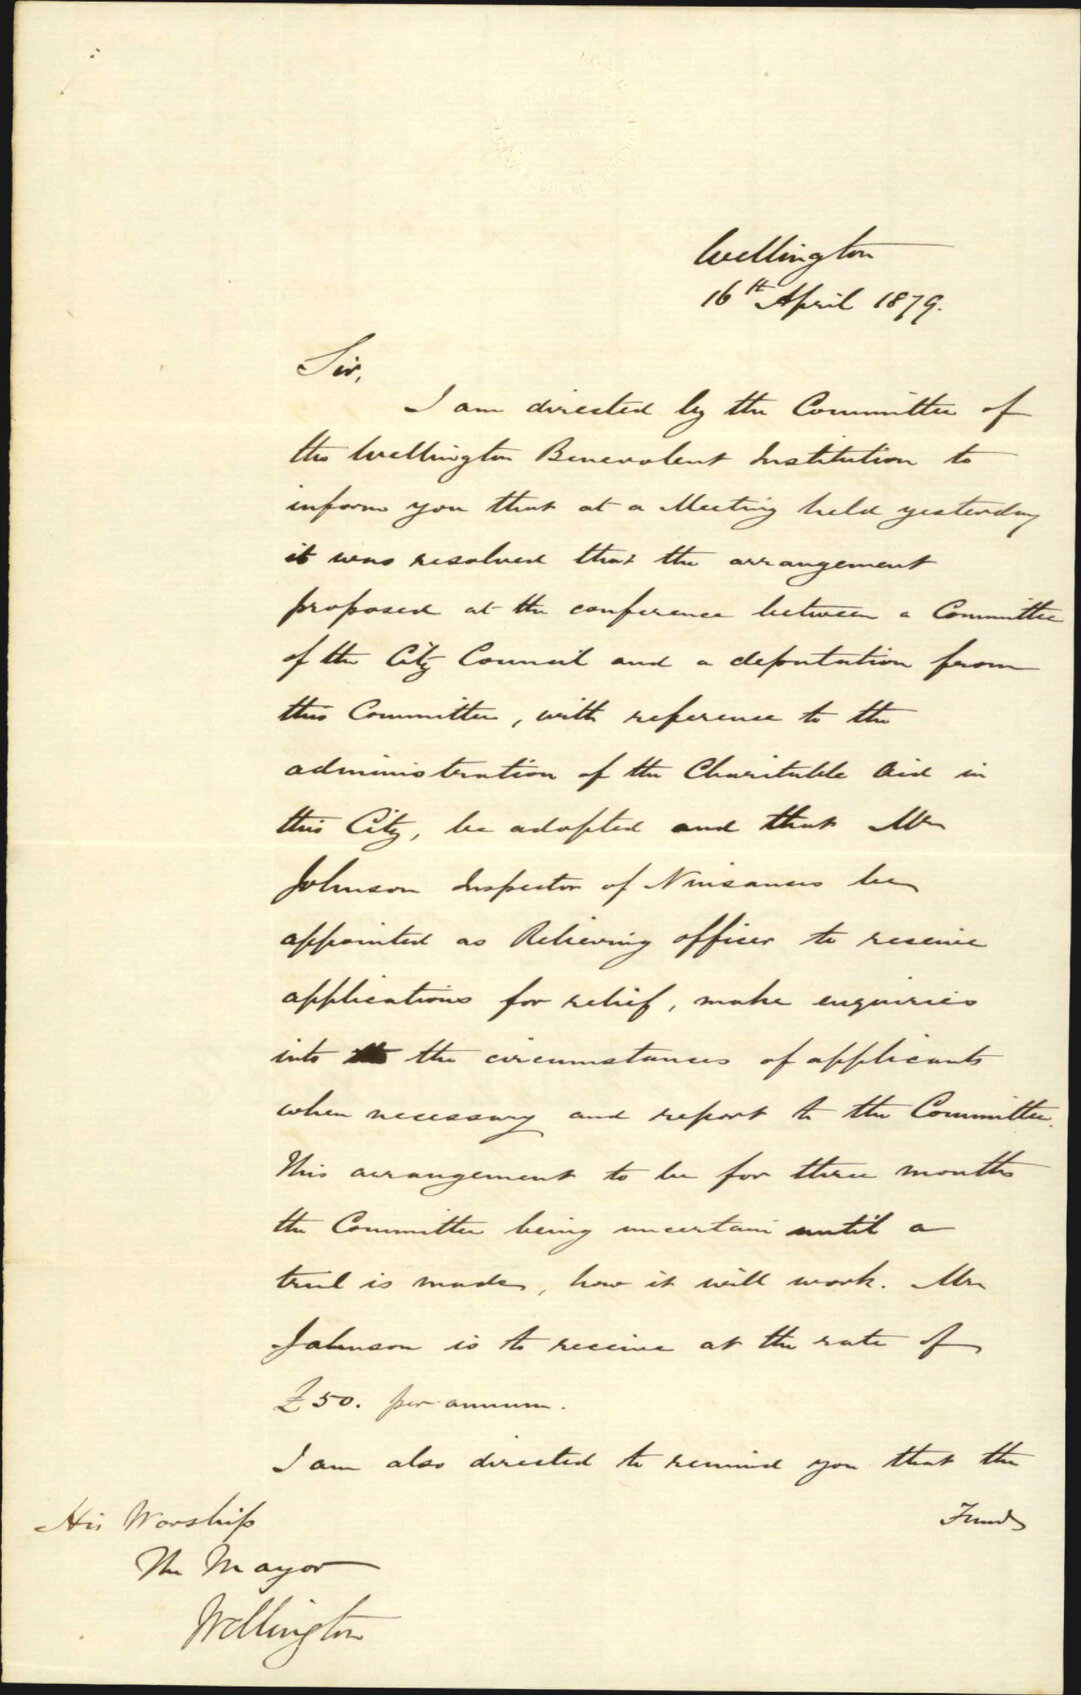 Wellington
16th April 1879.
Sir,
I am directed by the Committee of
the Wellington Benevolent Institution to
inform you that at a Meeting held yesterday
it was resolved that the arrangement
proposed at the conference between a Committee
of the City Council and a deputation from
this Committee, with reference to the
administration of the Charitable Aid in
this City, be adopted and that Mr
Johnson Inspector of Nuisances be
appointed as Relieving officer to receive
applications for relief, make enquiries
into the circumstances of applicants
when necessary and report to the Committee.
This arrangement to be for three months
the Committee being uncertain until a
trial is made, how it will work. Mr
Johnson is to receive at the rate of
£50. per annum.
I am also directed to remind you that the
Funds
His Worship
The Mayor
Wellington